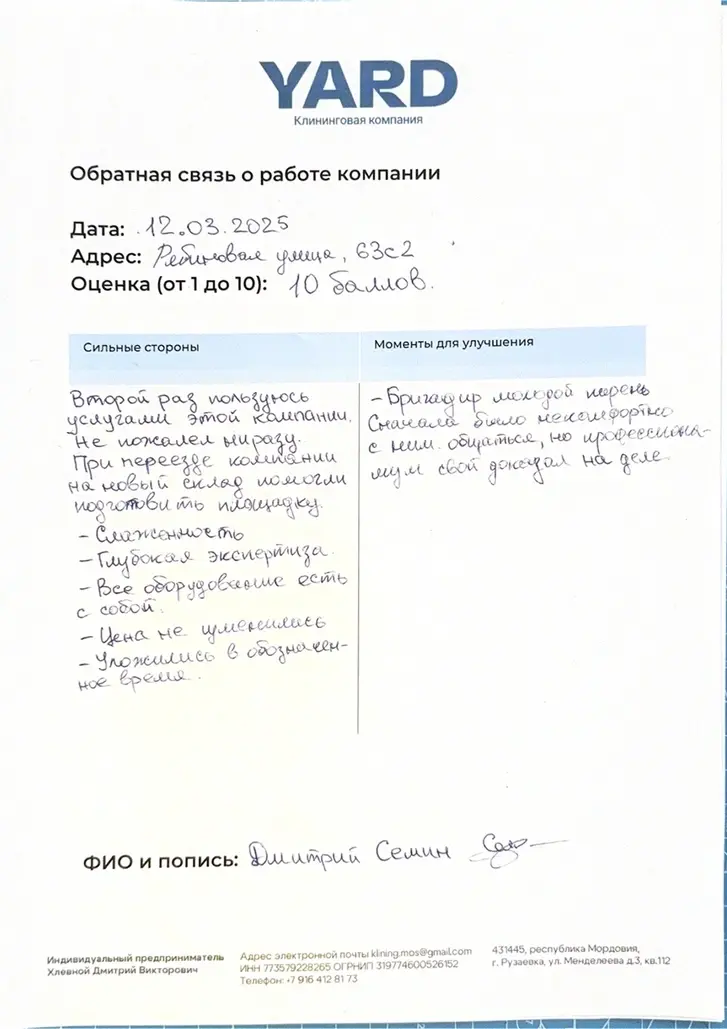 YARD
Клининговая компания
Обратная связь о работе компании
Дата: 12.03.2025
Адрес: Рябиновая улица, 63с2
Оценка (от 1 до 10): 10 баллов.
Сильные стороны
Второй раз пользуюсь
услугами этой компании.
Не пожалел ни разу.
При переезде компании
на новый склад помогли
подготовить площадку.
- Слаженность
- Глубокая экспертиза.
- Все оборудование есть
с собой.
- Цена не изменилась
- Уложились в обозначен-
ное время.
Моменты для улучшения
- Бригадир молодой парень
Сначала было некомфортно
с ним общаться, но профессиона-
лизм свой доказал на деле
ФИО и попись: Дмитрий Семин
Индивидуальный предприниматель
Хлевной Дмитрий Викторович
Адрес электронной почты klining.mos@gmail.com
ИНН 773579228265 ОГРНИП 319774600526152
Телефон: +7 916 412 81 73
431445, республика Мордовия,
г. Рузаевка, ул. Менделеева д.3, кв.112